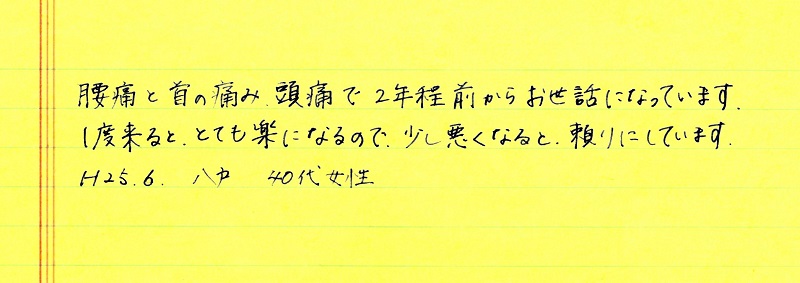 腰痛と首の痛み、頭痛で2年程前からお世話になっています。
1度来ると、とても楽になるので、少し悪くなると、頼りにしています。
H25.6. 八戸 40代女性